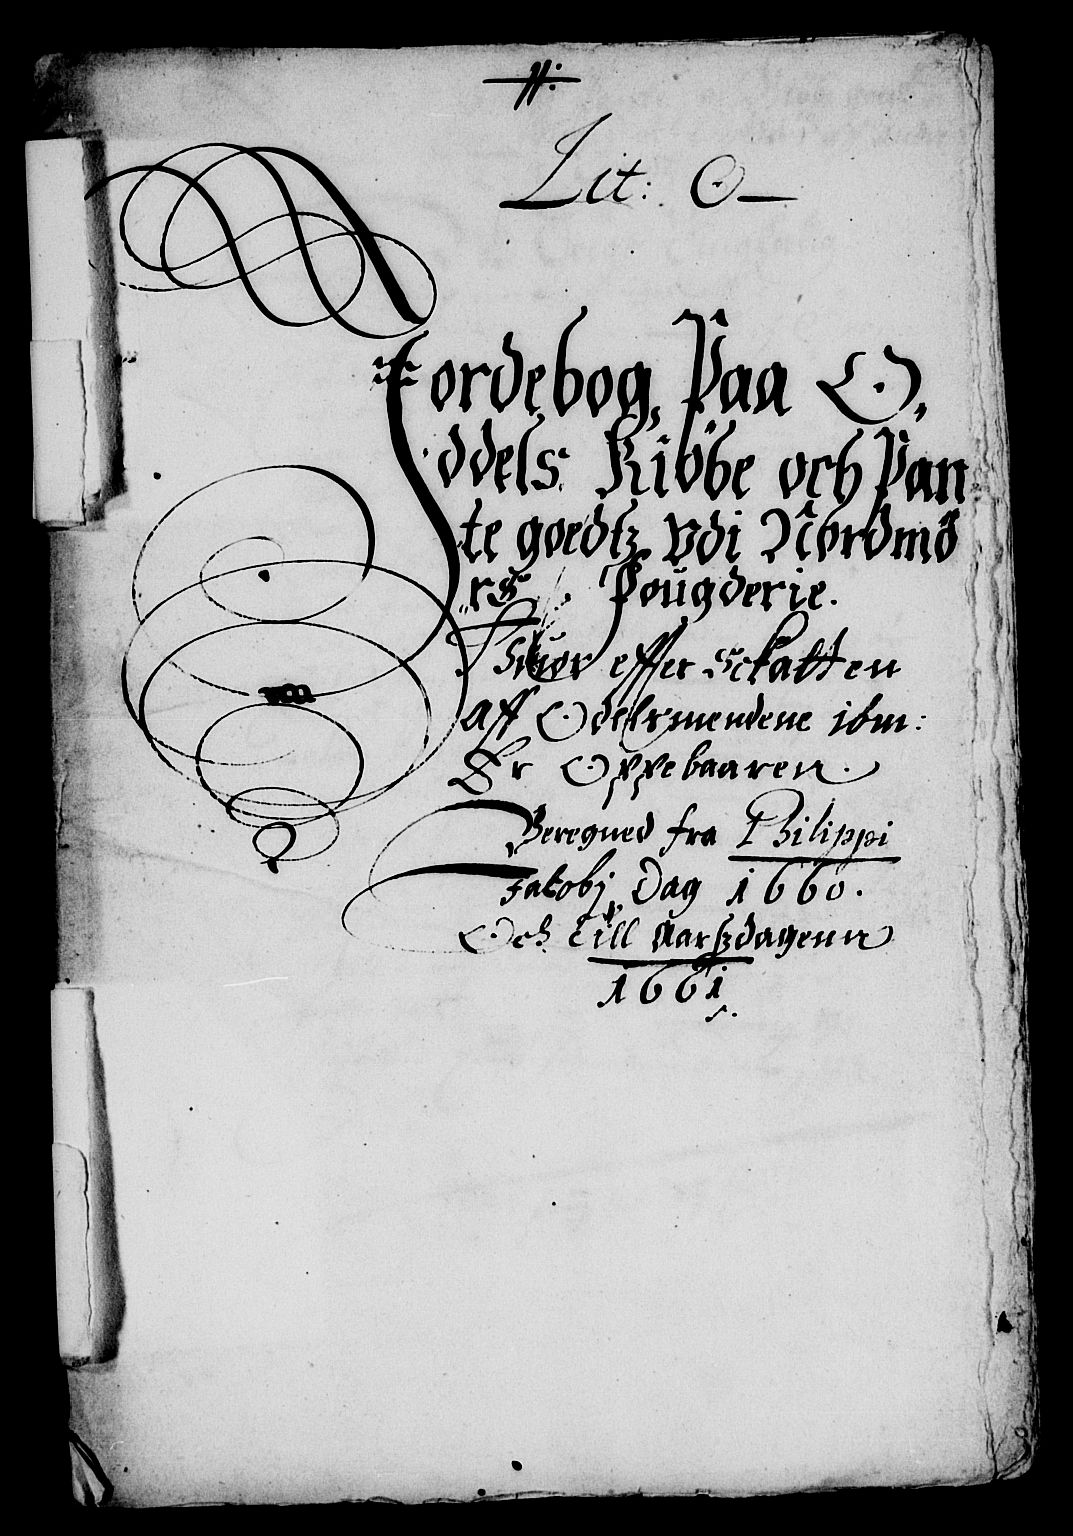 N:
Lit: O
Jordebog, Paa O,
ddels Kiöbe och Pan
te goedtz Vdi Nordmö
rs Fougderie.
Huor effter Schatten
Aff Odelsmendene ibm:
Er Oppebaaren.
Beregned fra Philippi
Jakobj Dag 1660.
Och Till Aarszdagenn
1661.